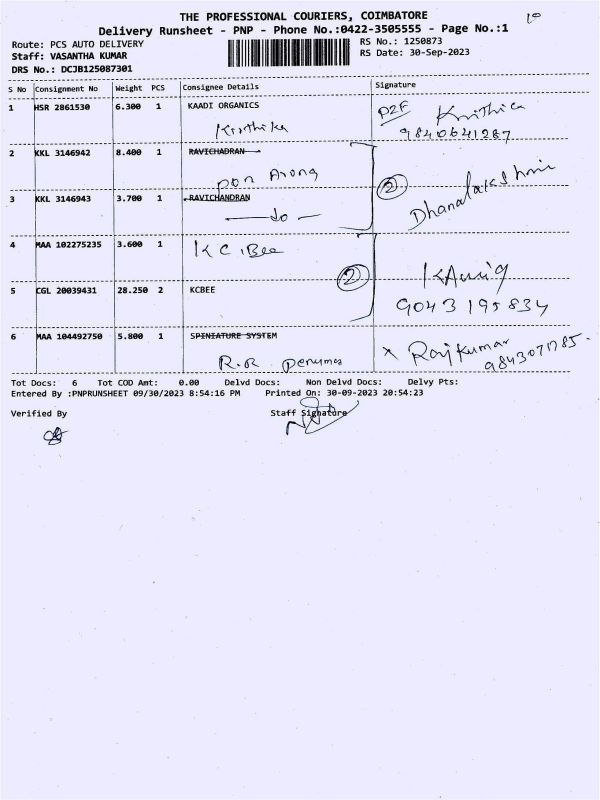 THE PROFESSIONAL COURIERS, COIMBATORE
10
Delivery Runsheet - PNP - Phone No.:0422-3505555 - Page No.:1
Route: PCS AUTO DELIVERY
RS No.: 1250873
Staff: VASANTHA KUMAR
RS Date: 30-Sep-2023
DRS No.: DCJB125087301
S No Consignment No Weight PCS Consignee Details Signature
1 HSR 2861530 6.300 1 KAADI ORGANICS
Krithika
P2F Krithica
9840641287
2 KKL 3146942 8.400 1 RAVICHADRAN
pon Arong
3 KKL 3146943 3.700 1 RAVICHANDRAN
— do —
2 Dhanalakshmi
4 MAA 102275235 3.600 1
K C Bee
5 CGL 20039431 28.250 2 KCBEE
2
9043195834
6 MAA 104492750 5.800 1 SPINIATURE SYSTEM
R.R perumas
x Rajkumar
9843071785.
Tot Docs: 6 Tot COD Amt: 0.00 Delvd Docs: Non Delvd Docs: Delvy Pts:
Entered By :PNPRUNSHEET 09/30/2023 8:54:16 PM Printed On: 30-09-2023 20:54:23
Verified By Staff Signature